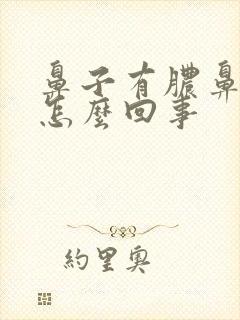 鼻子有膿鼻
怎麼回事
約里奧